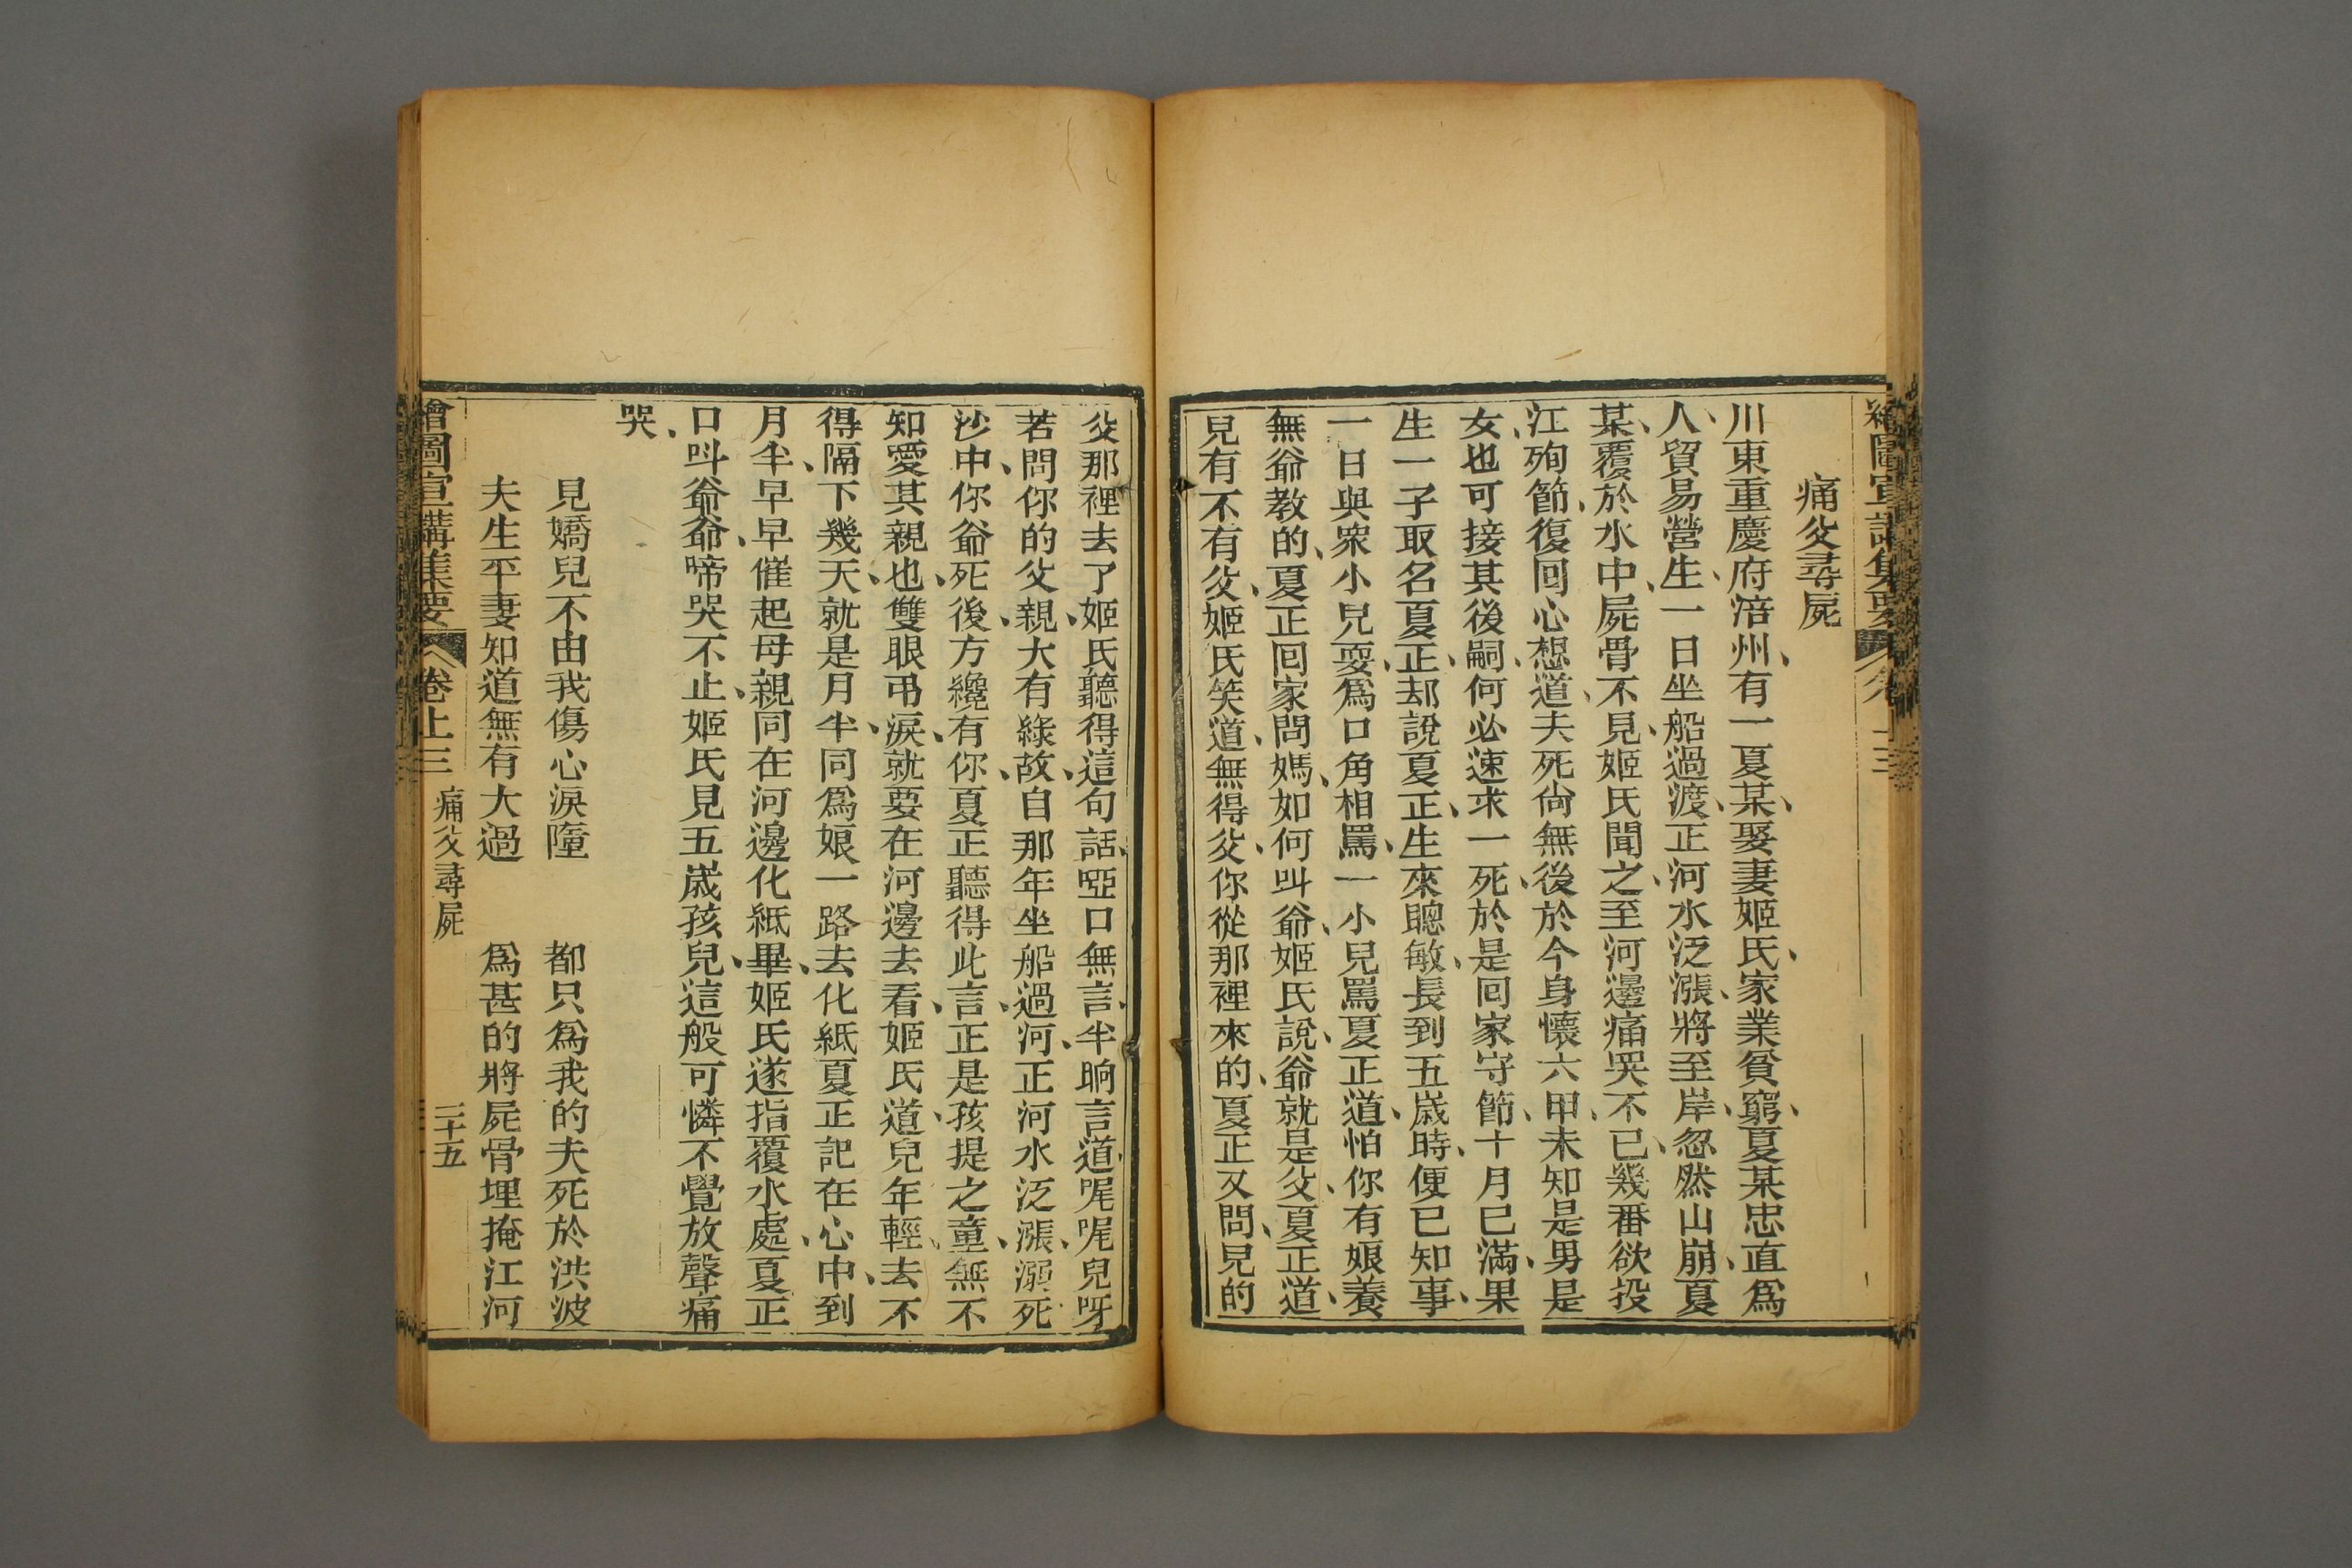 繪圖宣講集要
痛父尋屍
川東重慶府涪州、有一夏某、娶妻姬氏、家業貧窮、夏某忠直爲
人、貿易營生、一日坐船過渡、正河水泛漲、將至岸、忽然山崩、夏
某、覆於水中、屍骨不見、姬氏聞之、至河邊痛哭不已、幾番欲投
江殉節、復回心想道、夫死尙無後、於今身懷六甲、未知是男是
女、也可接其後嗣、何必速求一死、於是回家守節、十月已滿、果
生一子取名夏正、却說夏正、生來聰敏、長到五歲時、便已知事、
一日與衆小兒耍、爲口角相罵、一小兒罵夏正道、怕你有娘養
無爺教的、夏正回家問媽、如何叫爺、姬氏說、爺就是父、夏正道、
兒有不有父、姬氏笑道、無得父、你從那裡來的、夏正又問、兒的
父那裡去了、姬氏聽得這句話、啞口無言、半晌言道、呢呢兒呀
若問你的父親、大有緣故、自那年坐船過河、正河水泛漲、溺死
沙中、你爺死後、方纔有你、夏正聽得此言、正是孩提之童、無不
知愛其親也、雙眼弔淚、就要在河邊去看、姬氏道、兒年輕、去不
得、隔下幾天、就是月半、同爲娘一路去化紙、夏正記在心中、到
月半、早早催起母親、同在河邊化紙畢、姬氏遂指覆水處、夏正
口叫爺爺、啼哭不止、姬氏見五歲孩兒、這般可憐、不覺放聲痛
哭、
見嬌兒不由我傷心淚墮　都只爲我的夫死於洪波
夫生平妻知道無有大過　爲甚的將屍骨埋掩江河
繪圖宣講集要　卷上三　痛父尋屍　二十五